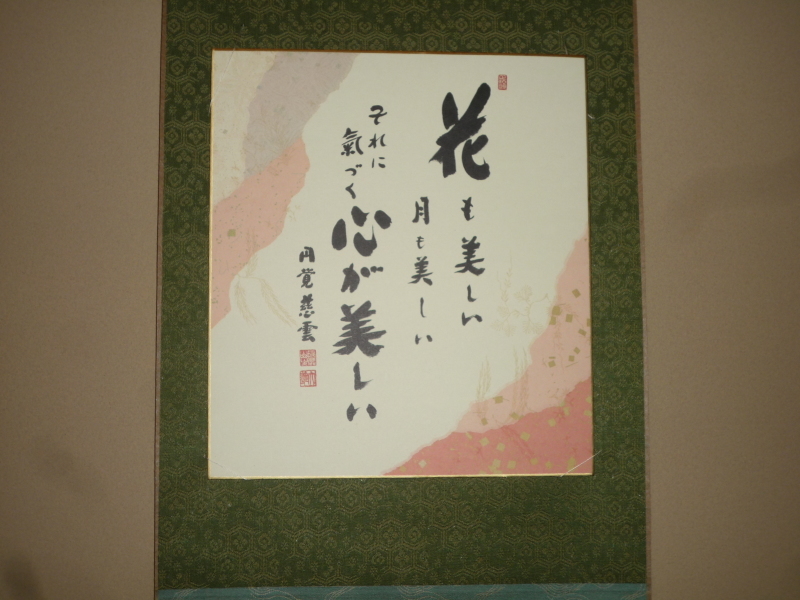 花も美しい
月も美しい
それに
氣づく心が美しい
円覚慈雲